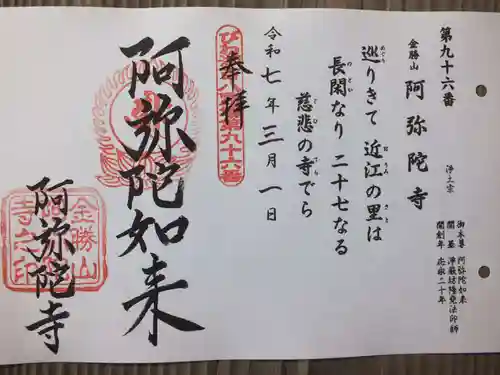 第九十六番
金勝山 阿弥陀寺
浄土宗
御本尊 阿弥陀如来
開基 浄厳坊隆堯法印師
開創年 応永二十年
巡りきて 近江の里は
めぐ おうみ さと
長閑なり 二十七なる
のどか
慈悲の寺でら
じひ てら
令和七年三月一日
奉拝
九十六番
阿弥陀如来
阿弥陀寺
金勝山
寺之印